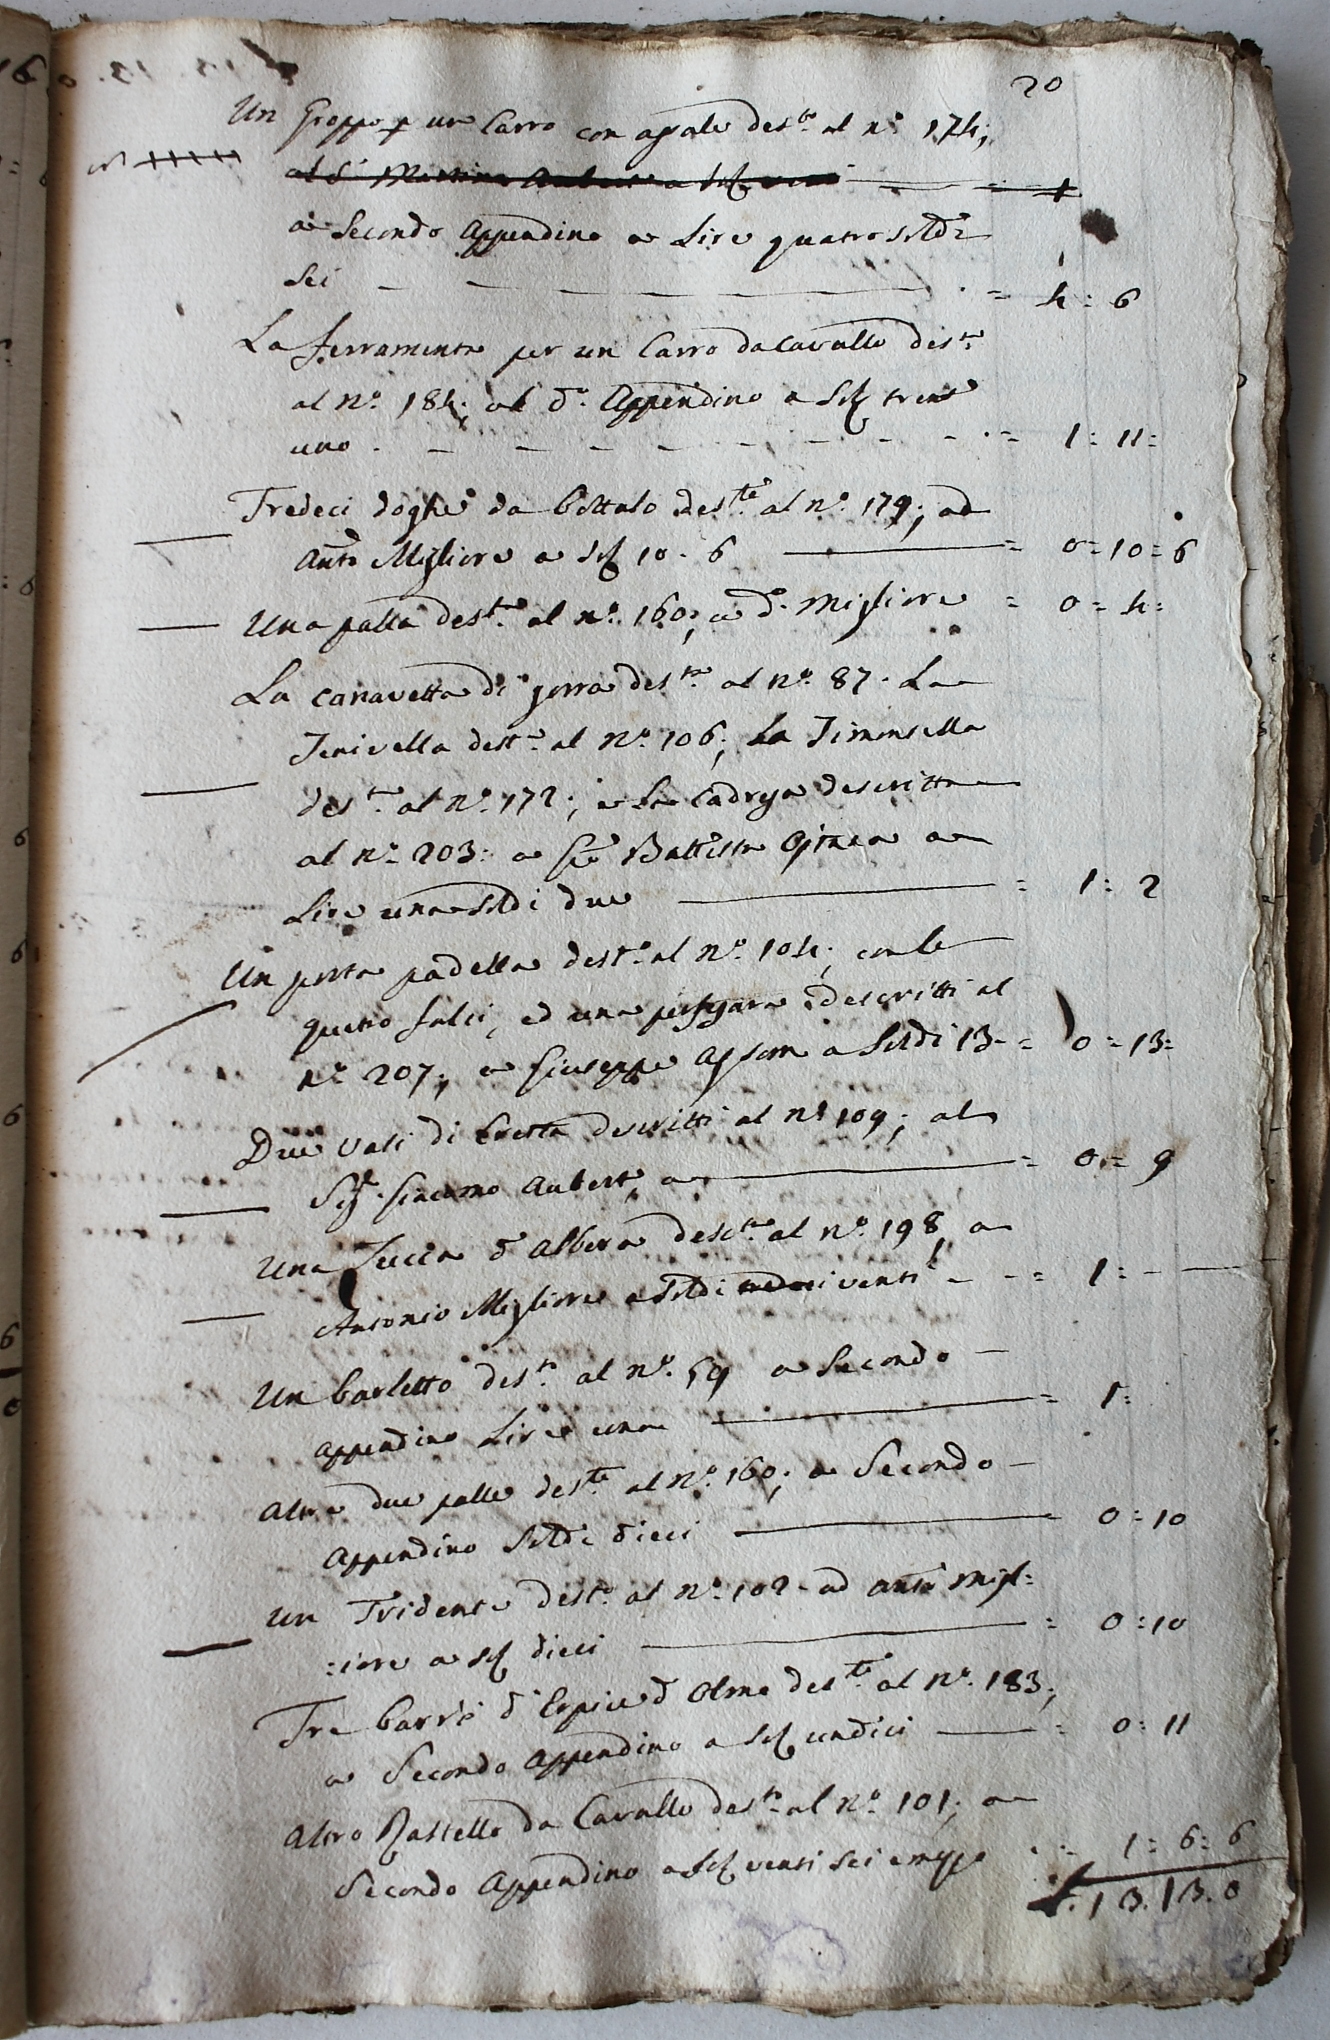 20
Un Groppo p un Carro con assale des.to al n.o 174;
a Secondo Appendino a Lire quatro soldi
sei = 4 : 6
La ferramenta per un Carro da Cavallo des.ta
al N.o 184; al d.o Appendino a Sol. trent
uno = 1 : 11 :
Tredeci doghe da bottalo des.te al N.o 179; ad
Ant.o Migliore a Sol. 10. 6 = 0 = 10 = 6
Una palla des.ta al n.o 160; a d.o Migliore = 0 = 4 :
La canavetta di gorra des.ta al N.o 87. La
Tenivella dest.a al N.o 106; La Timonsella
des.ta al N.o 172; e La Cadrega descritta
al N.o 203: a Gio Battista a
Lire una soldi due = 1 : 2
Un porta padella dest.o al N.o 104; con le
quatro falci, ed una descritti al
N.o 207; a Giuseppe a Soldi 13 = 0 = 13 =
Due Vasi di Cretta descritti al N.o 109; al
Sig.r Giacomo Aubert, a = 0 = 9
Una d'Albera desc.ta al N.o 198, a
Antonio Migliore a Soldi venti = 1 :
Un barletto des.to al N.o 59 a Secondo
Appendino Lire una = 1 :
Altre due palle des.te al N.o 160; a Secondo
Appendino Soldi dieci 0 = 10
Un Tridente dest.o al N.o 102. ad Ant.o Migl:
:iore a Sol. dieci = 0 : 10
Tre barre d'Erpice d'Olmo des.te al N.o 183;
a Secondo Appendino a Sol. undici = 0 : 11
Altro Rastello da Cavallo des.to al N.o 101; a
Secondo Appendino a Sol. venti sei e mezzo = 1 : 6 : 6
£. 13. 13. 0